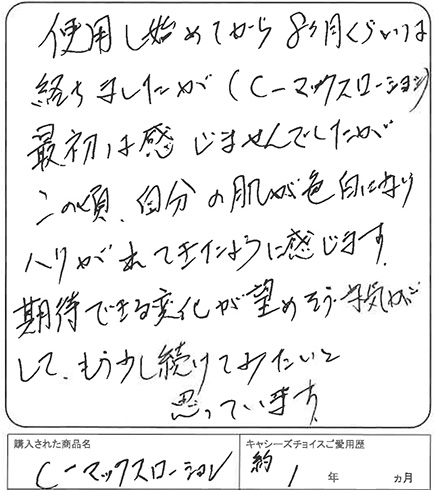 使用し始めてから8ヶ月くらいは
経ちましたが(Cーマックスローション)
最初は感じませんでしたが
この頃、自分の肌が色白になり
ハリがれてきたように感じます。
期待できる変化が望めそうな気が
して、もう少し続けてみたいと
思っています。
購入された商品名
Cーマックスローション
キャシーズチョイスご愛用歴
約1年 ヵ月